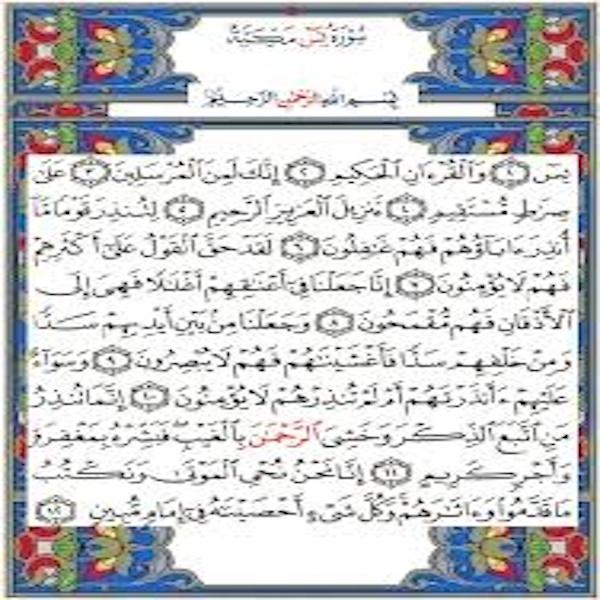 سُورَةُ يسٓ مَكِّيَّةٌ
بِسْمِ اللَّهِ الرَّحْمَٰنِ الرَّحِيمِ
يسٓ ۝١ وَالْقُرْءَانِ الْحَكِيمِ ۝٢ إِنَّكَ لَمِنَ الْمُرْسَلِينَ ۝٣ عَلَىٰ
صِرَٰطٍ مُّسْتَقِيمٍ ۝٤ تَنزِيلَ الْعَزِيزِ الرَّحِيمِ ۝٥ لِتُنذِرَ قَوْمًا مَّا
أُنذِرَ ءَابَآؤُهُمْ فَهُمْ غَٰفِلُونَ ۝٦ لَقَدْ حَقَّ الْقَوْلُ عَلَىٰٓ أَكْثَرِهِمْ
فَهُمْ لَا يُؤْمِنُونَ ۝٧ إِنَّا جَعَلْنَا فِىٓ أَعْنَٰقِهِمْ أَغْلَٰلًا فَهِىَ إِلَى
الْأَذْقَانِ فَهُم مُّقْمَحُونَ ۝٨ وَجَعَلْنَا مِنۢ بَيْنِ أَيْدِيهِمْ سَدًّا
وَمِنْ خَلْفِهِمْ سَدًّا فَأَغْشَيْنَٰهُمْ فَهُمْ لَا يُبْصِرُونَ ۝٩ وَسَوَآءٌ
عَلَيْهِمْ ءَأَنذَرْتَهُمْ أَمْ لَمْ تُنذِرْهُمْ لَا يُؤْمِنُونَ ۝١٠ إِنَّمَا تُنذِرُ
مَنِ اتَّبَعَ الذِّكْرَ وَخَشِىَ الرَّحْمَٰنَ بِالْغَيْبِ ۖ فَبَشِّرْهُ بِمَغْفِرَةٍ
وَأَجْرٍ كَرِيمٍ ۝١١ إِنَّا نَحْنُ نُحْىِ الْمَوْتَىٰ وَنَكْتُبُ
مَا قَدَّمُوا۟ وَءَاثَٰرَهُمْ ۚ وَكُلَّ شَىْءٍ أَحْصَيْنَٰهُ فِىٓ إِمَامٍ مُّبِينٍ ۝١٢